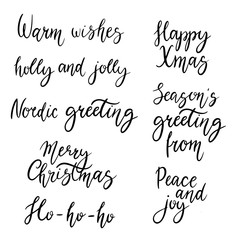 Warm wishes
holly and jolly
Nordic greeting
Merry
Christmas
Ho-ho-ho
Happy
Xmas
Season's
greeting
from
Peace
and
joy